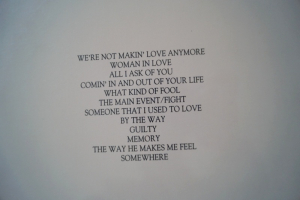 WE'RE NOT MAKIN' LOVE ANYMORE
WOMAN IN LOVE
ALL I ASK OF YOU
COMIN' IN AND OUT OF YOUR LIFE
WHAT KIND OF FOOL
THE MAIN EVENT/FIGHT
SOMEONE THAT I USED TO LOVE
BY THE WAY
GUILTY
MEMORY
THE WAY HE MAKES ME FEEL
SOMEWHERE